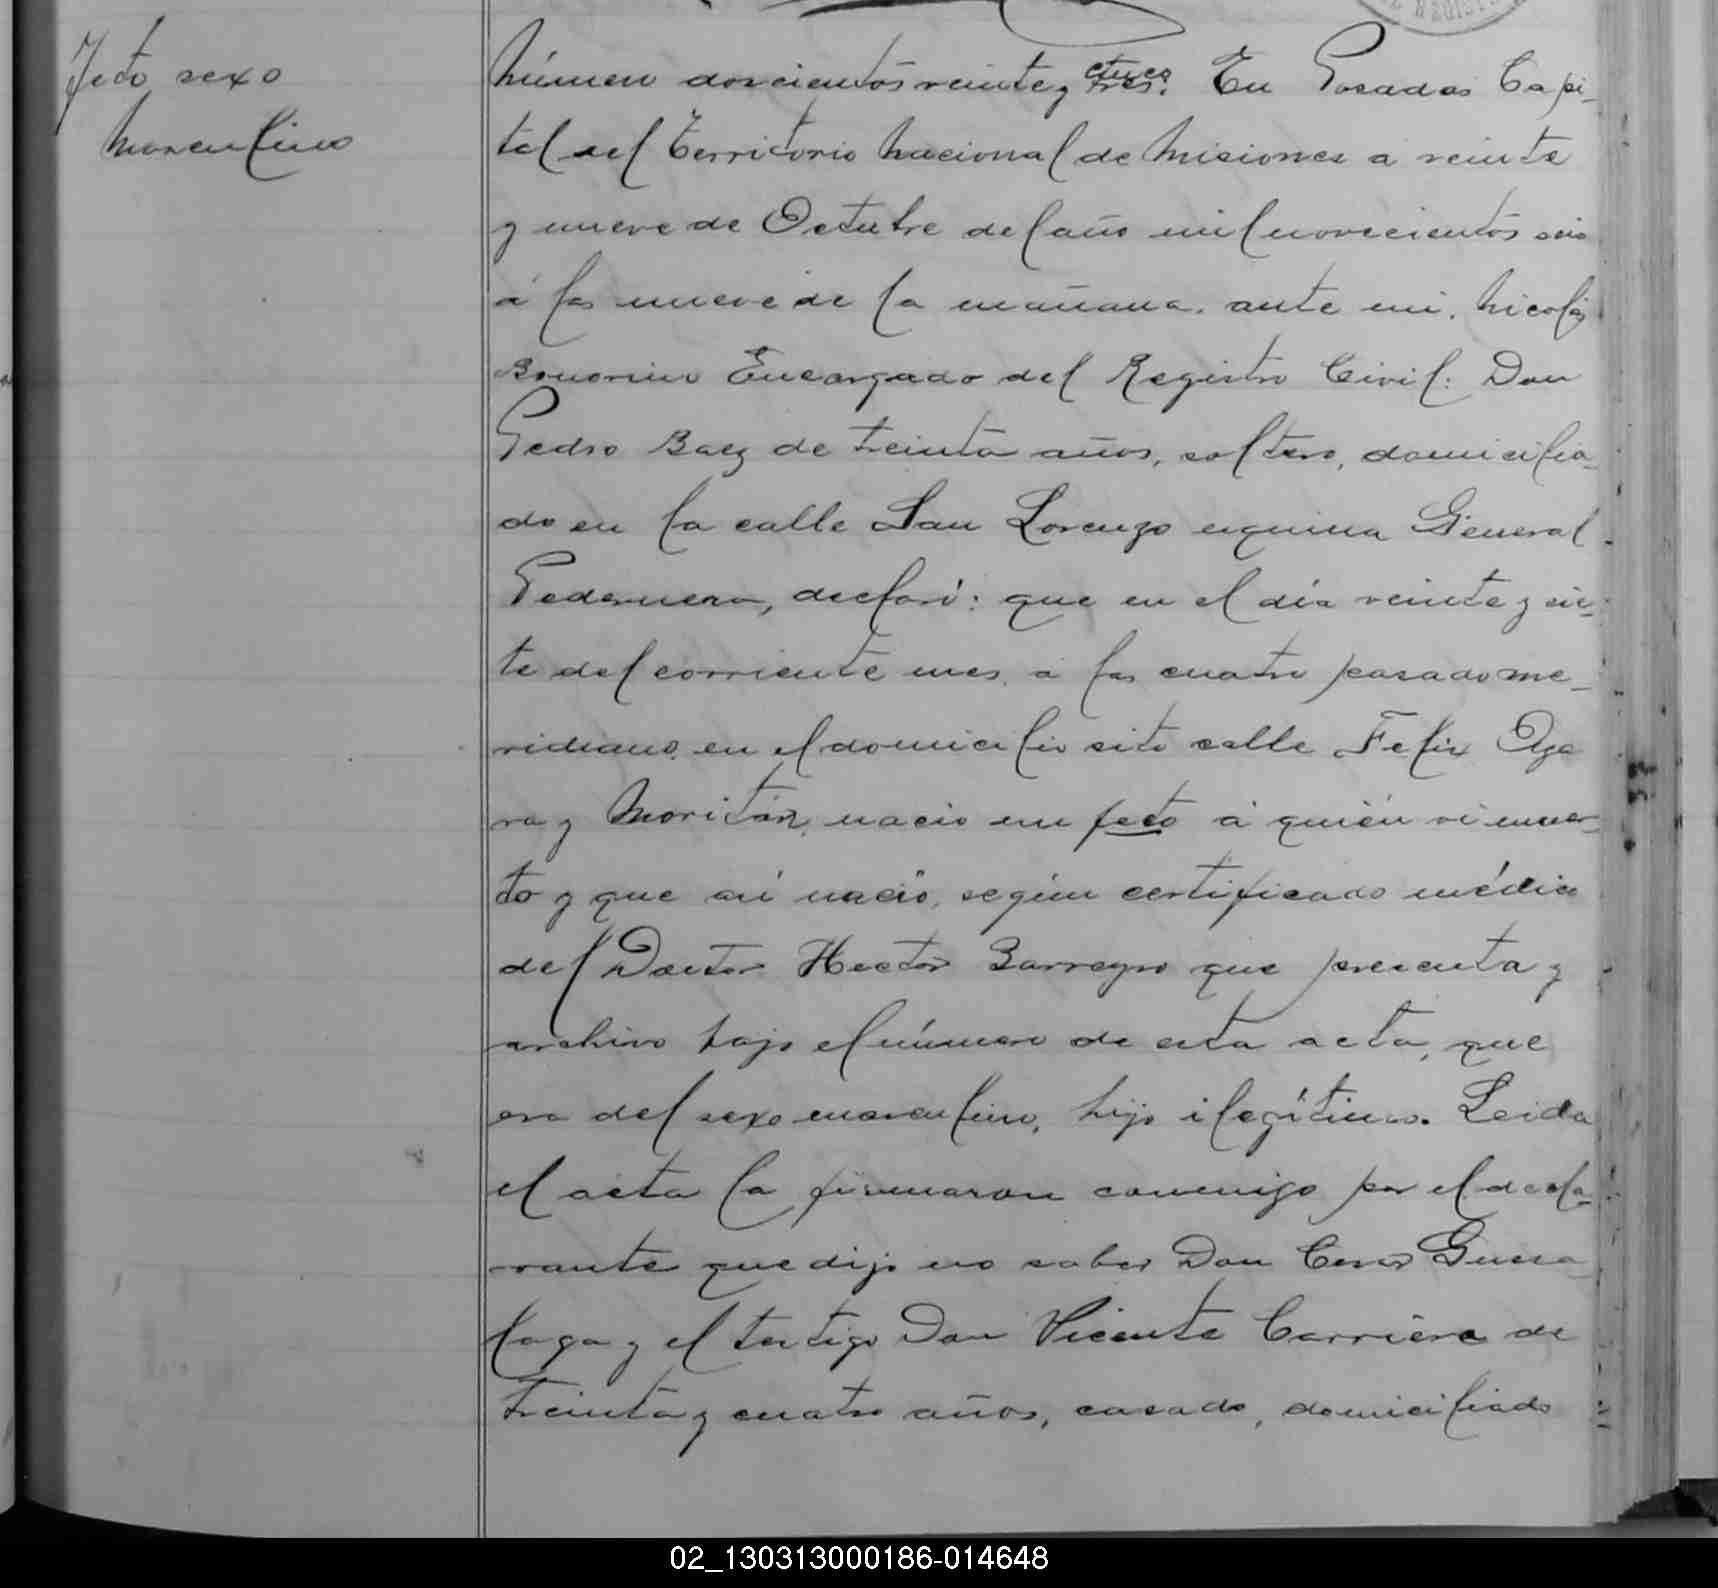 Feto sexo
masculino
Número doscientos veinte y cinco tres. En Posadas Capi-
tal del Territorio Nacional de Misiones a veinte
y nueve de Octubre del año mil novecientos seis
á las nueve de la mañana, ante mi, Nicolás
Bonorino Encargado del Registro Civil: Don
Pedro Baez de treinta años, soltero, domicilia-
do en la calle San Lorenzo esquina General
Pedernera, declaró: que en el día veinte y sie-
te del corriente mes, a las cuatro pasado me-
ridiano, en el domicilio sito calle Felix Aga
ra y Moritán, nació un feto á quién vi muer-
to y que así nació, según certificado médico
del Doctor Hector Barreyro que presenta y
archivo bajo el número de esta acta, que
era del sexo masculino, hijo ilegítimo. Leida
el acta la firmaron conmigo por el decla-
rante que dijo no saber Don Cesar Guesa-
laga y el testigo Don Vicente Carriere de
treinta y cuatro años, casado, domiciliado
02_130313000186-014648